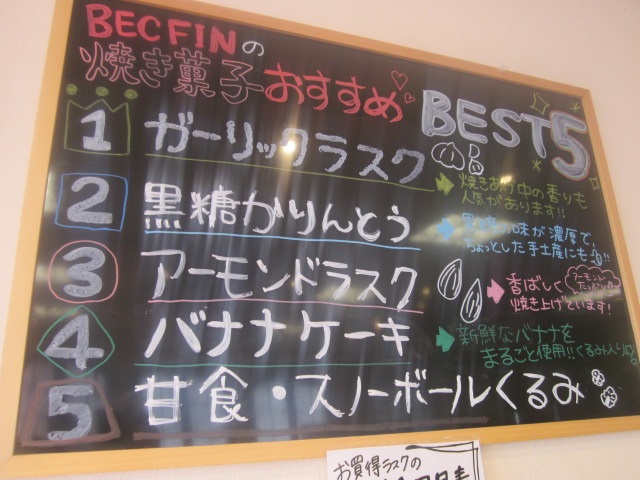 BECFINの
焼き菓子おすすめ BEST5
1 ガーリックラスク
焼きあげ中の香りも
人気があります!!
2 黒糖かりんとう
黒糖の味が濃厚で、
ちょっとした手土産にも!!
3 アーモンドラスク
香ばしく
焼き上げています!
4 バナナケーキ
新鮮なバナナを
まるごと使用!!くるみ入り
5 甘食・スノーボールくるみ
お買得ラスクの